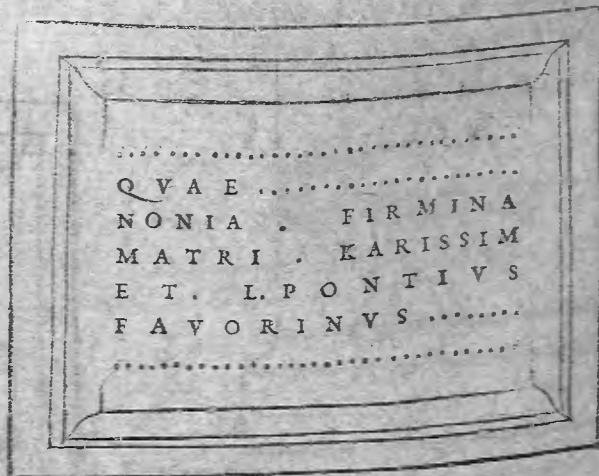 ..............................
QVAE ....................
NONIA . FIRMINA
MATRI . KARISSIM
ET. L. PONTIVS
FAVORINVS ........
..............................